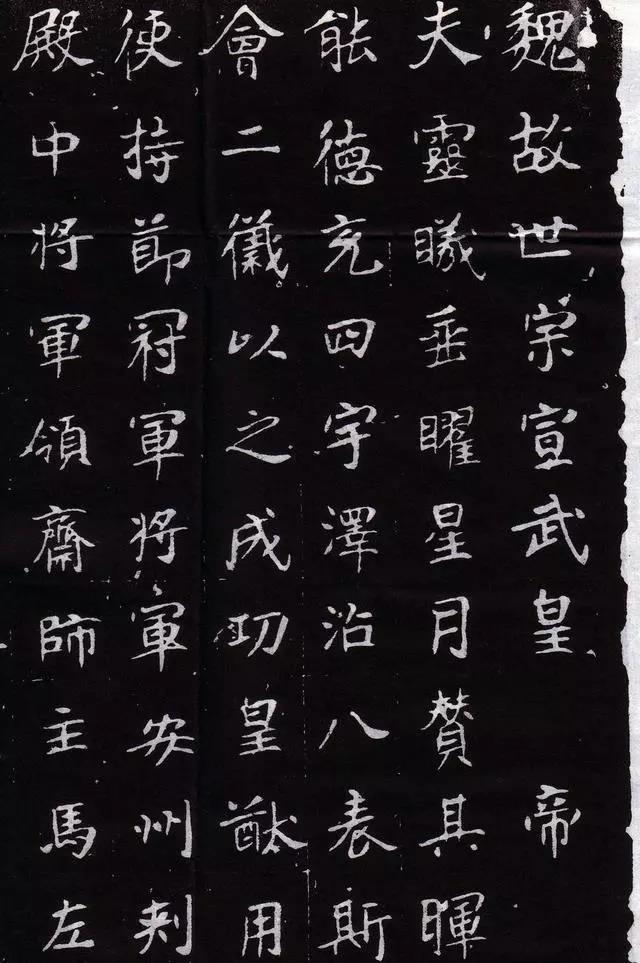 魏故世宗宣武皇帝
夫靈曦垂曜星月賛其暉
能德充四宇澤沿八表斯
會二徽以之成功皇猷用
使持節冠軍将軍安州刺
殿中将軍領齋師主馬左